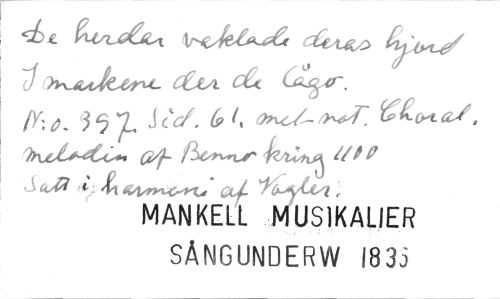 De herdar vaklade deras hjord
I markene der de lågo.
N:o. 397. Sid. 61. met not. Choral.
melodin af Benno kring 1100
Satt i harmoni af Vogler.
MANKELL MUSIKALIER
SÅNGUNDERW 1835